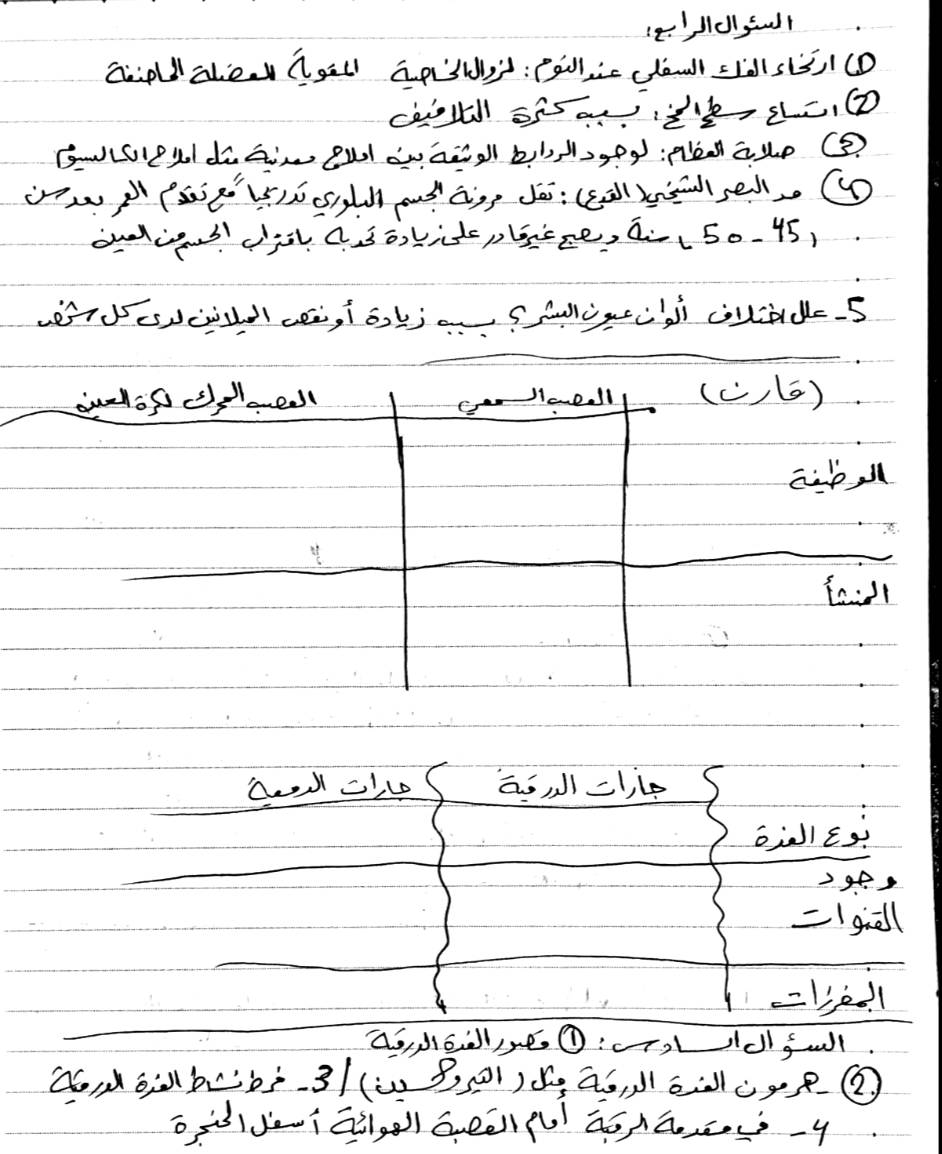 السئوال الرابع:
① ارتخاء الفك السفلي عند النوم: لزوال الخاصية المقوية للعضلة الماضغة
② اتساع سطح المخ: بسبب كثرة التلافيف
③ صلابة العظام: لوجود الروابط الوثيقة بين املاح معدنية مثل املاح الكالسيوم
④ مد البصر الشيخي (القدع): تقل مرونة الجسم البلوري تدريجياً مع تقدم العمر بعد سن
(45 - 50) سنة ويصبح غير قادر على زيادة تحدبه باقتراب الجسم من العين
5- علل اختلاف ألوان عيون البشر؟ بسبب زيادة أو نقص الميلانين لدى كل شخص
(قارن) العصب السمعي العصب المحرك لكرة العين
الوظيفة
المنشأ
جارات الدرقية جارات الدمعية
نوع الغدة
وجود
القنوات
المفرزات
السؤال السادس: ① قصور الغدة الدرقية
② - هرمون الغدة الدرقية مثل (التيروكسين) / 3- فرط نشاط الغدة الدرقية
4 - في مقدمة الرقبة أمام القصبة الهوائية أسفل الحنجرة